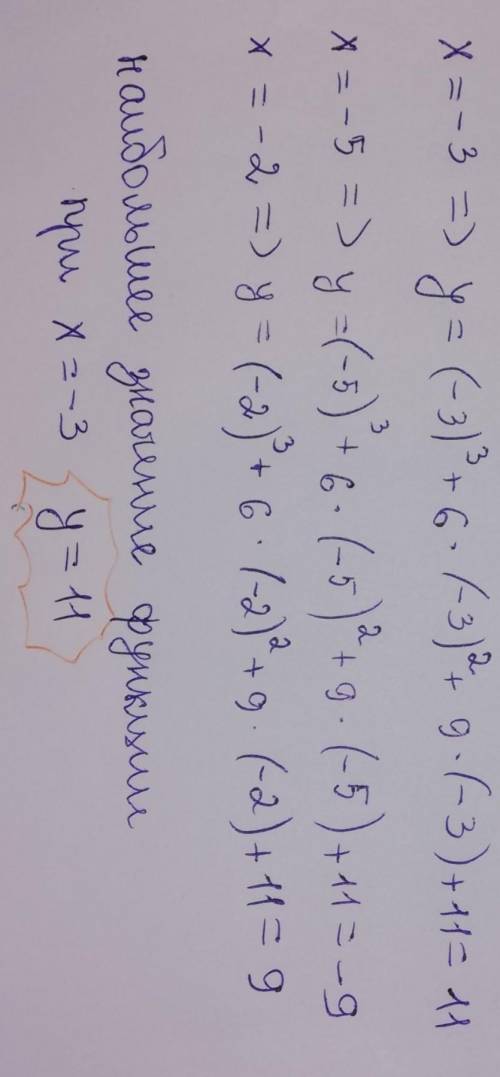 x = -3 => y = (-3)³ + 6 · (-3)² + 9 · (-3) + 11 = 11
x = -5 => y = (-5)³ + 6 · (-5)² + 9 · (-5) + 11 = -9
x = -2 => y = (-2)³ + 6 · (-2)² + 9 · (-2) + 11 = 9
наибольшее значение функции
при x = -3 y = 11